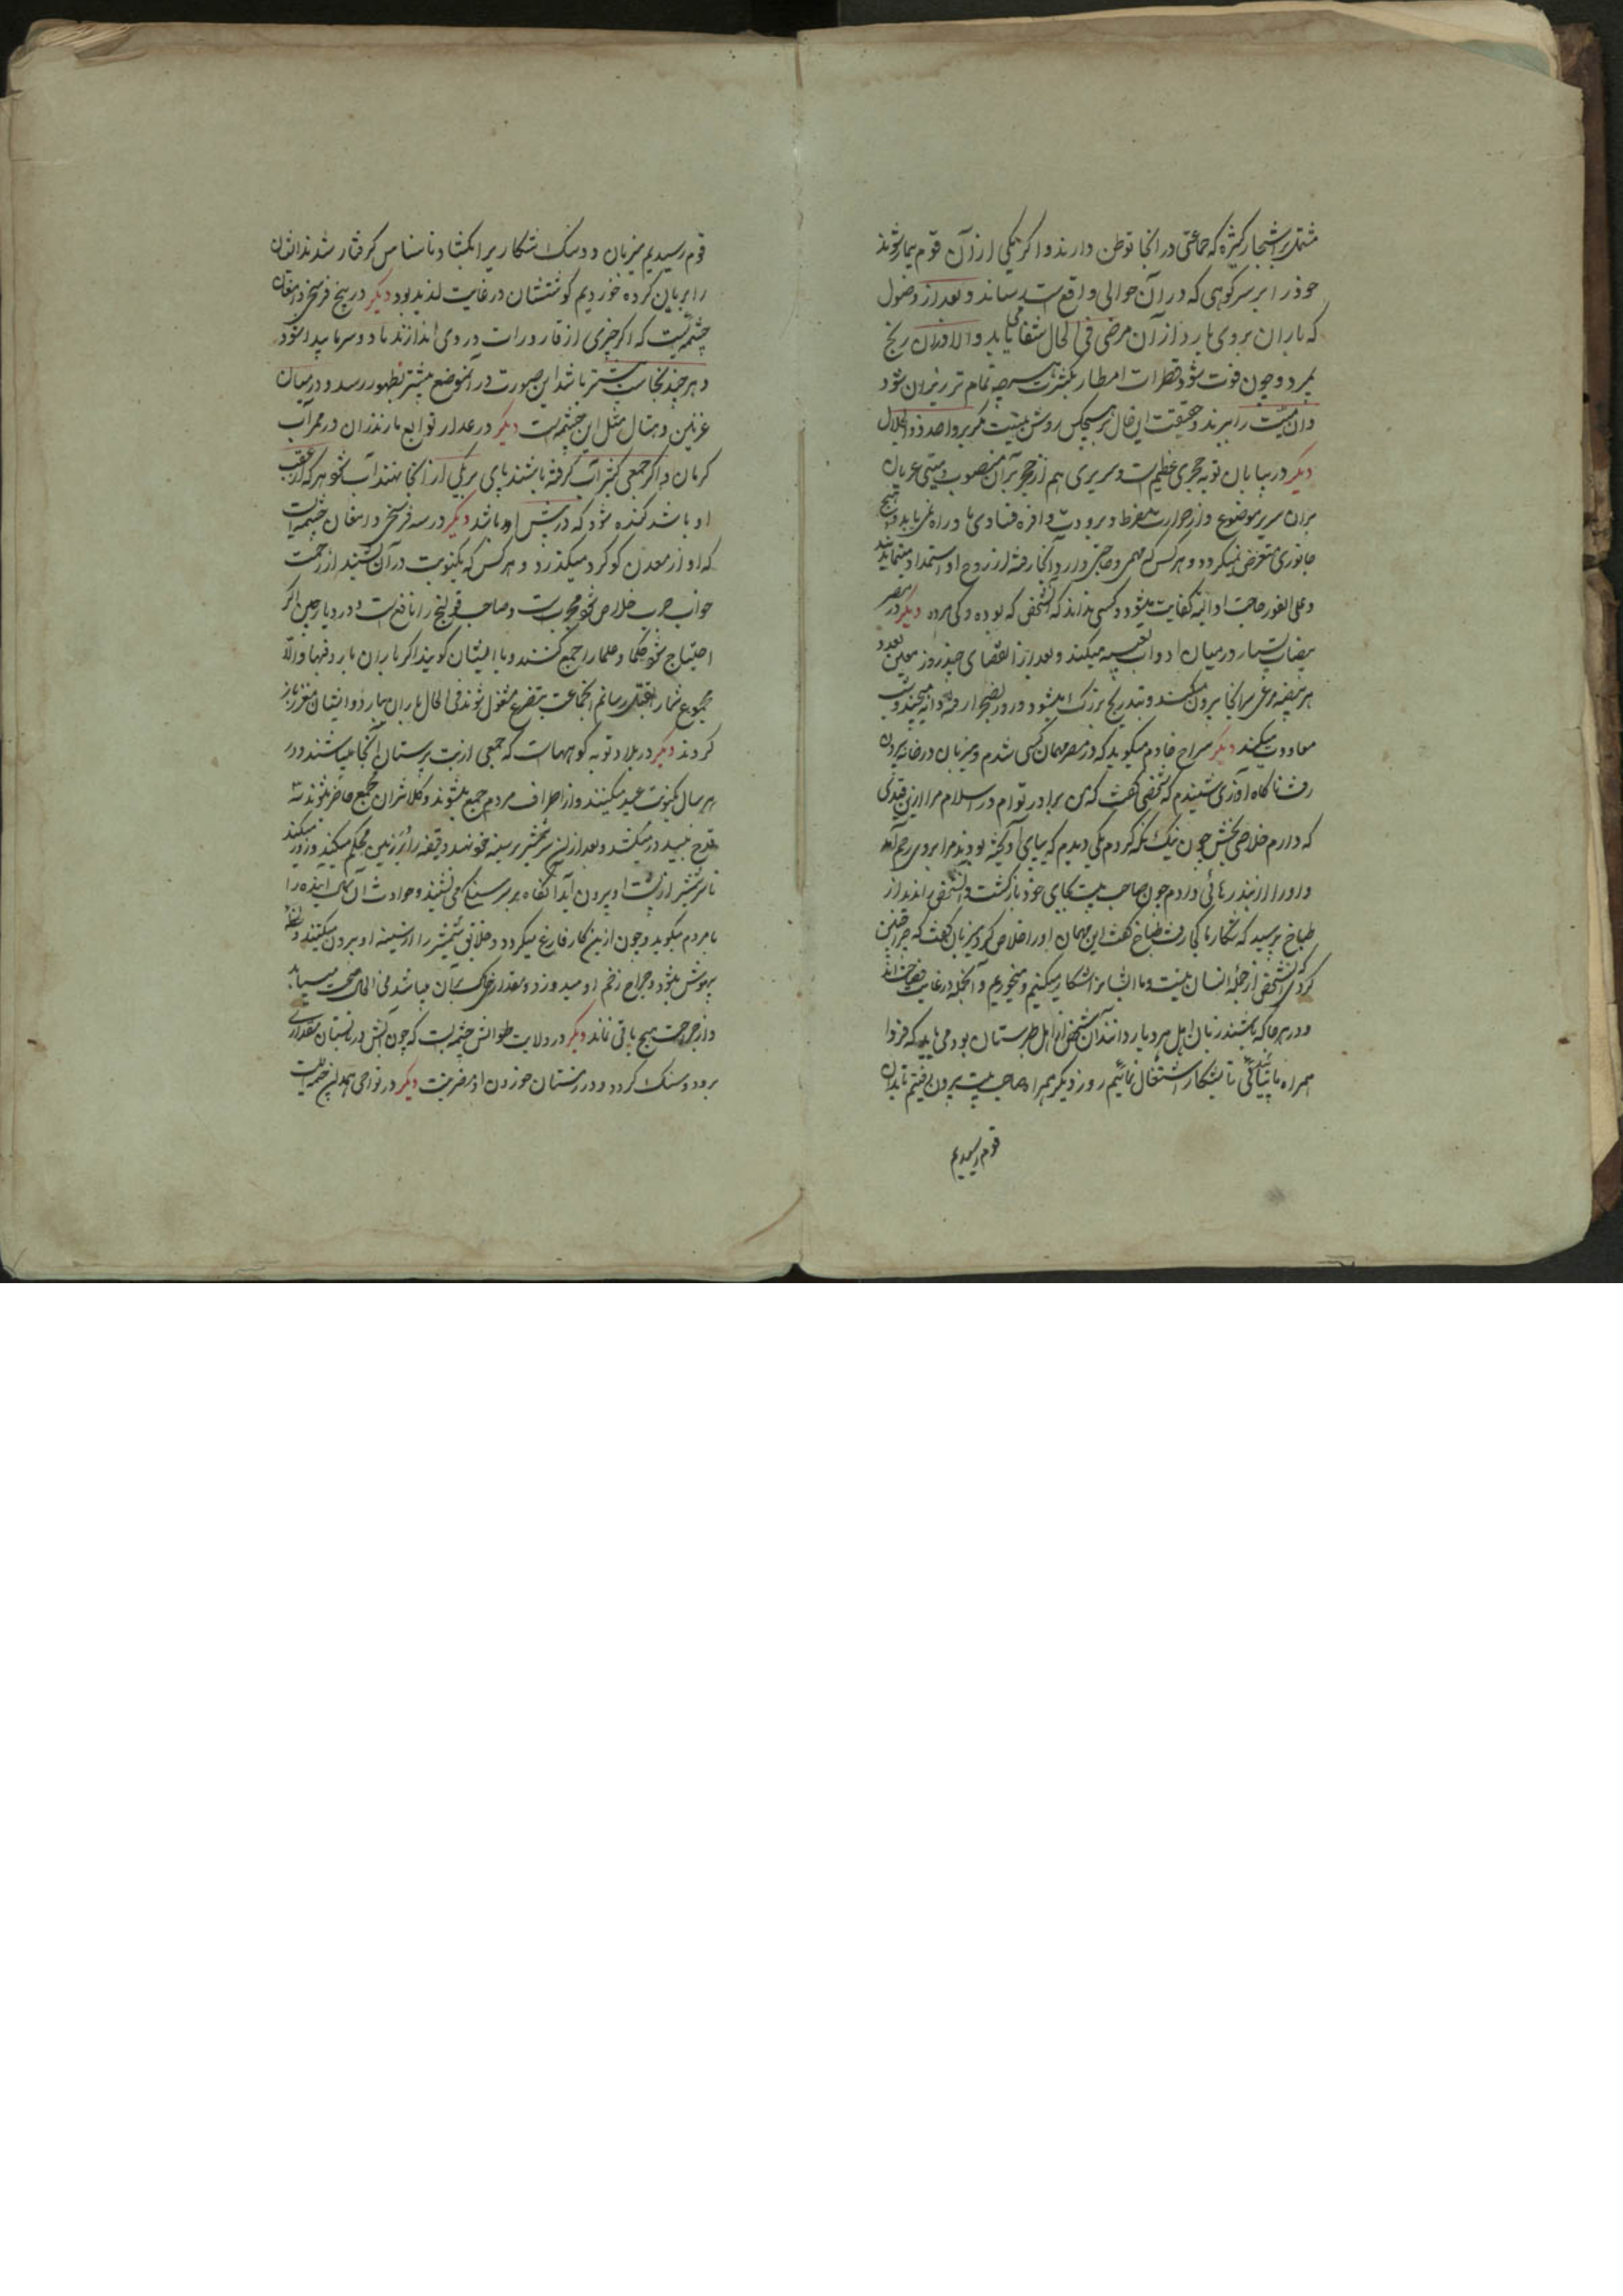 مشتمل بر اشجار کثیره که جماعتی در انجا توطن دارند و اکر یکی از آن قوم بیمار شوند
خود را بر سر کوهی که در آن حوالی واقعست رساند و بعد از وصول
که باران بر وی بارد از آن مرض فی الحال شفا می یابد و الا در آن رنج
بمیرد و چون فوت شود قطرات امطار بکثرت هر چه تمام تر ریزان شود
و آن میّت را ببرند و حقیقت این حال بر هیچکس روشن نیست مکر بر واحد ذو الجلال
دیکر در بیابان نوبه حجری عظیمست و سریری هم از حجر بر آن منصوب و میتی عریان
بر آن سریر موضوع و از حرارت مفرط و برودت وافره فسادی باو راه نمی یابد و هیچ
جانوری متعرض نمیکردد و هر کس که مهمی و حاجتی دارد آنجا رفته از روح او استمداد مینماید
و علی الفور حاجت او البته کفایت میشود و کسی نداند که آنشخص که بوده و کی مرده دیکر در مصر
بیضات بسیار در میان ادواث تعبیه میکنند و بعد از انقضای چند روز معین بعدد
هر بیضه مرغی سر انجا بیرون میکند و بتدریج بزرک میشود و روز بصحرا رفته دانه میچیند و شب
معاودت میکند دیکر سراج خادم میکوید که در مصر مهمان کسی شدم و میزبان در خانه بیرون
رفت ناکاه آوازی شنیدم که شخصی کفت که من برادر توام در اسلام مرا ازین قیدی
که دارم خلاصی بخش چون نیک نکه کردم یکی دیدم که بپای آویخته بودند مرا بر وی رحم آمد
و او را از بند رهائی دادم چون صاحب بیت بجای خود بازکشت و آنشخص را ندید از
طباخ پرسید که شکار ما کجا رفت طباخ کفت این مهمان او را خلاص کرد میزبان کفت که چرا چنین
کردی که آنشخص از جمله انسان نیست و ما ایشانرا شکار میکنیم و میخوریم و آنجمله در غایت فصاحت اند
و در هر جا که باشند زبان اهل هر دیار دانند آن شخص از اهل طبرستان بود می باید که فردا
همراه ما بیائی تا بشکار اشتغال نمائیم روز دیکر همراه صاحب بیت بیرون رفتیم تا بدان
قوم رسیدیم
قوم رسیدیم میزبان دو سک شکاریرا بکشاد نسناس کرفتار شدند ایشان
را بریان کرده خوردیم کوشتشان در غایت لذیذ بود دیکر در پنج فرسخی دامغان
چشمه ایست که اکر چیزی از قاذورات در وی اندازند باد و سرما پیدا شود
و هر چند نجاست بیشتر باشد این صورت در آنموضع بیشتر بظهور رسد و در میان
غزنین و مثال مثل این چشمه ایست دیکر در توابع مازندران در ممر آب
کرمان و اکر جمعی کثیر آب کرفته باشند پای بر یکی از انجا نهند آب شود هر که از عقب
او باشد کنده شود که در پیش او باشد دیکر در سه فرسخی دامغان چشمه ایست
که او از معدن کوکرد میکذرد و هر کس که یکنوبت در آن نشیند از زحمت
جرب خلاص شود مجربست و صاحب قولنج را نافعست و در دیار چین اکر
احتیاج شود حکما و علما را جمع کنند و با ایشان کویند اکر باران بارد فبها و الا
مجموع شما را بقتل رسانم انجماعت بتضرع مشغول شوند فی الحال باران ببارد و ایشان معزز باز
کردند دیکر در بلاد نوبه کوهیست که جمعی از بت پرستان آنجا میباشند و در
هر سال یکنوبت عید میکنند و از اطراف مردم جمع میشوند و کلانتران مجمع حاضر میشوند سه
قدح نبیذ در میکشند و بعد از آن سر شمشیر بر سینه خود نهند و قبضه را بر زمین محکم میکنند و زور میکند
تا سر شمشیر از پشت او بیرون آید آنکاه بر سر سینه کی نشیند و حوادث آن سال آینده را
با مردم میکوید و چون ازین کار فارغ میکردد خلایق شمشیر را از سینه او بیرون میکشند و لحظه
بیهوش میشود و جراح زخم او میدوزد و مقداری خاک بر آن میپاشد فی الحال صحت مییابد
و از جراحت هیچ باقی نماند دیکر در ولایت طوالش چشمه ایست که چون آبش در تابستان مقداری
برود سنک کردد و در زمستان خوردن او مضر نیست دیکر در نواحی چشمه ایست